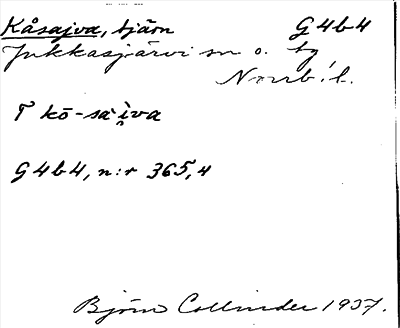 Kåsajva, tjärn G4b4
Jukkasjärvi sn o. tg
Norrb. l.
T kō-sài̯va
G4b4, n:r 365,4
Björn Collinder 1937.